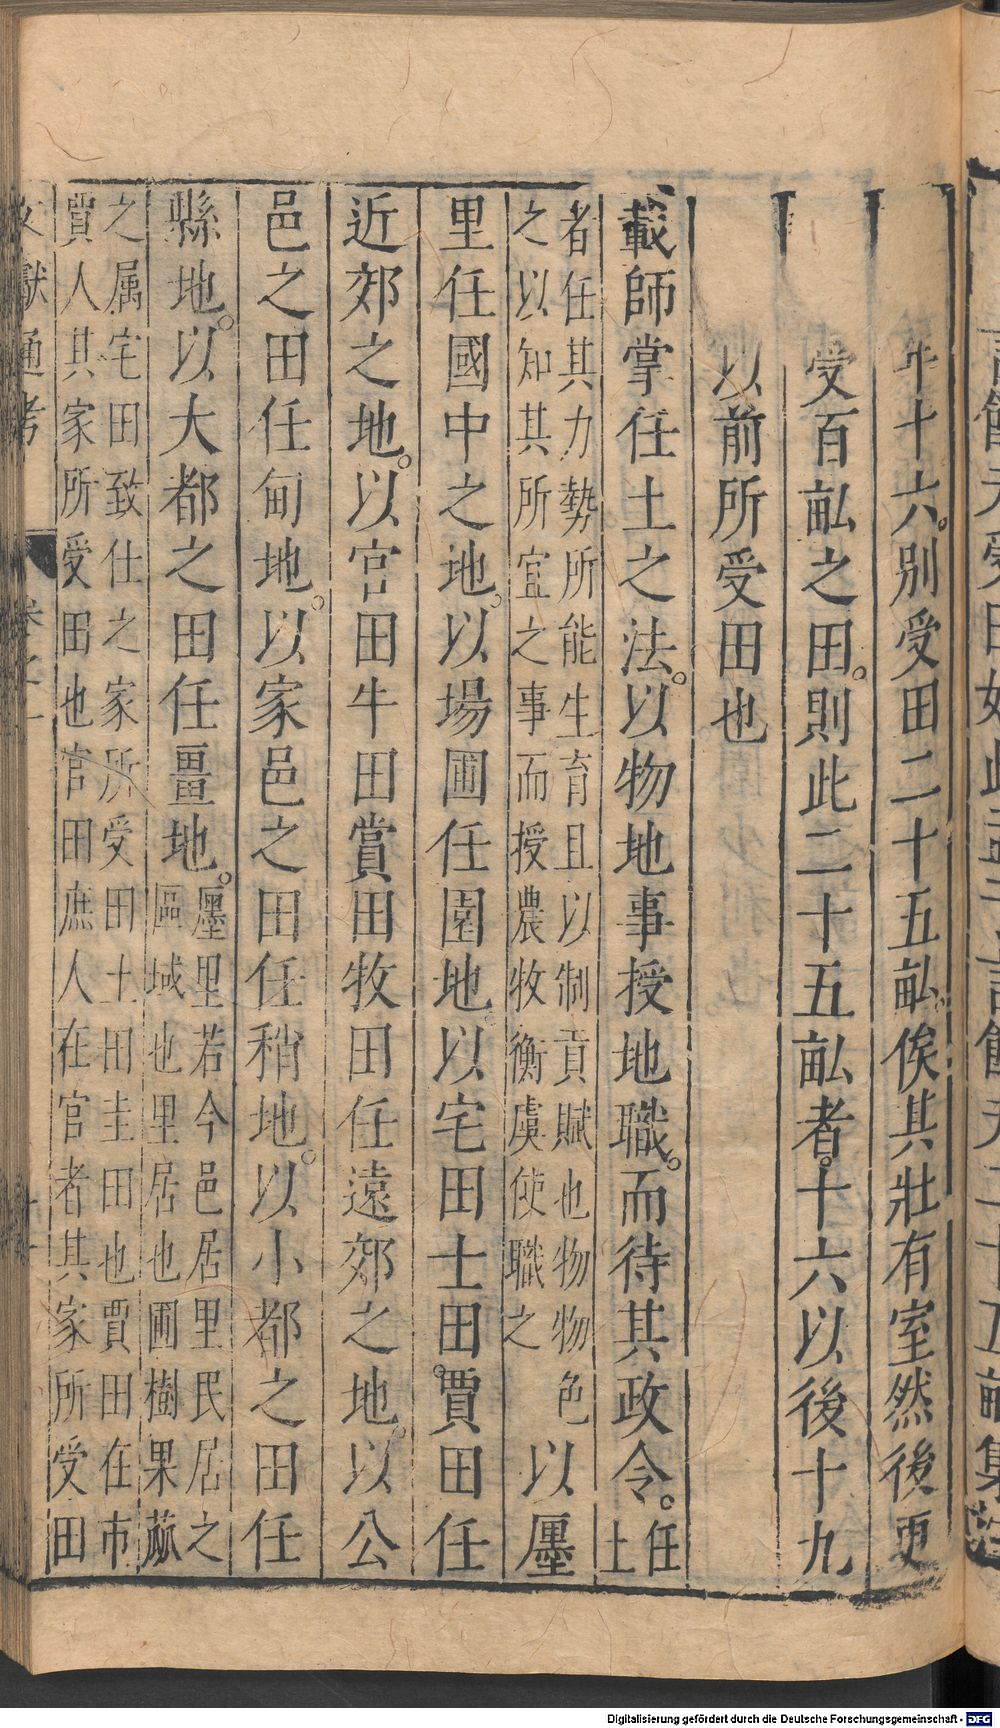 年十六。别受田二十五畝。俟其壯有室然後更
受百畝之田。則此二十五畝者。十六以後十九
以前所受田也
載師掌任土之法。以物地事授地職。而待其政令。任土
者任其力勢所能生育且以制貢賦也物物色
之以知其所宜之事而授農牧衡虞使職之
以廛
里任國中之地。以場圃任園地。以宅田士田。賈田任
近郊之地。以官田牛田賞田牧田任遠郊之地。以公
邑之田任甸地。以家邑之田任稍地。以小都之田任
縣地。以大都之田任畺地。
廛里若今邑居里民居之
區域也里居也圃樹果蓏
之属宅田致仕之家所受田士田圭田也賈田在市
賈人其家所受田也官田庶人在官者其家所受田
文獻通考
Digitalisierung gefördert durch die Deutsche Forschungsgemeinschaft - DFG